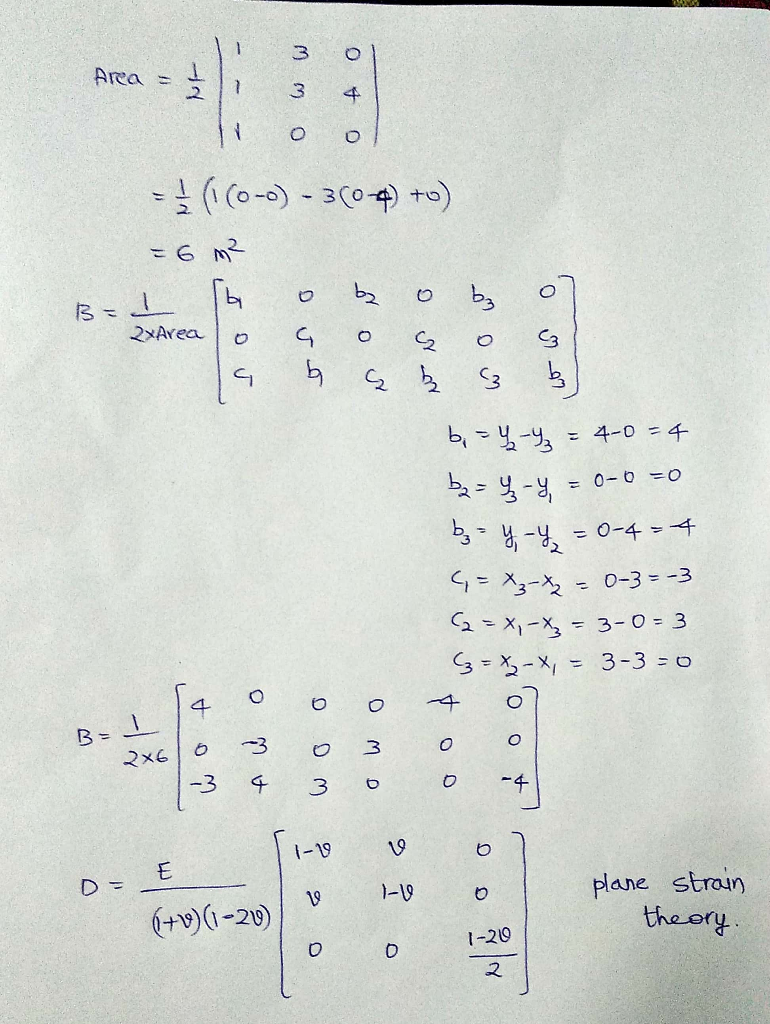 Area = 1/2 | 1 3 0 |
| 1 3 4 |
| 1 0 0 |
= 1/2 (1(0-0) - 3(0-4) +0)
= 6 m²
B = 1/(2×Area) [ b₁ 0 b₂ 0 b₃ 0 ]
[ 0 c₁ 0 c₂ 0 c₃ ]
[ c₁ b₁ c₂ b₂ c₃ b₃ ]
b₁ = y₂-y₃ = 4-0 = 4
b₂ = y₃-y₁ = 0-0 = 0
b₃ = y₁-y₂ = 0-4 = -4
c₁ = x₃-x₂ = 0-3 = -3
c₂ = x₁-x₃ = 3-0 = 3
c₃ = x₂-x₁ = 3-3 = 0
B = 1/(2×6) [ 4 0 0 0 -4 0 ]
[ 0 -3 0 3 0 0 ]
[ -3 4 3 0 0 -4 ]
D = E/((1+ϑ)(1-2ϑ)) [ 1-ϑ ϑ 0 ]
[ ϑ 1-ϑ 0 ]
[ 0 0 (1-2ϑ)/2 ]
plane strain
theory.